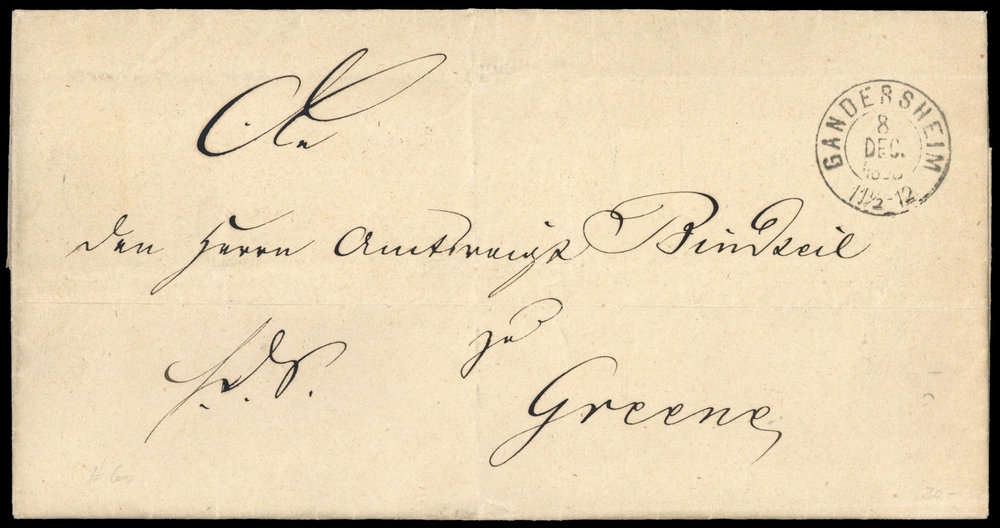 An
GANDERSHEIM
8
DEC.
11½-12
den Herrn Amtsvoigt Bindseil
zu
f. d. S.
Greene